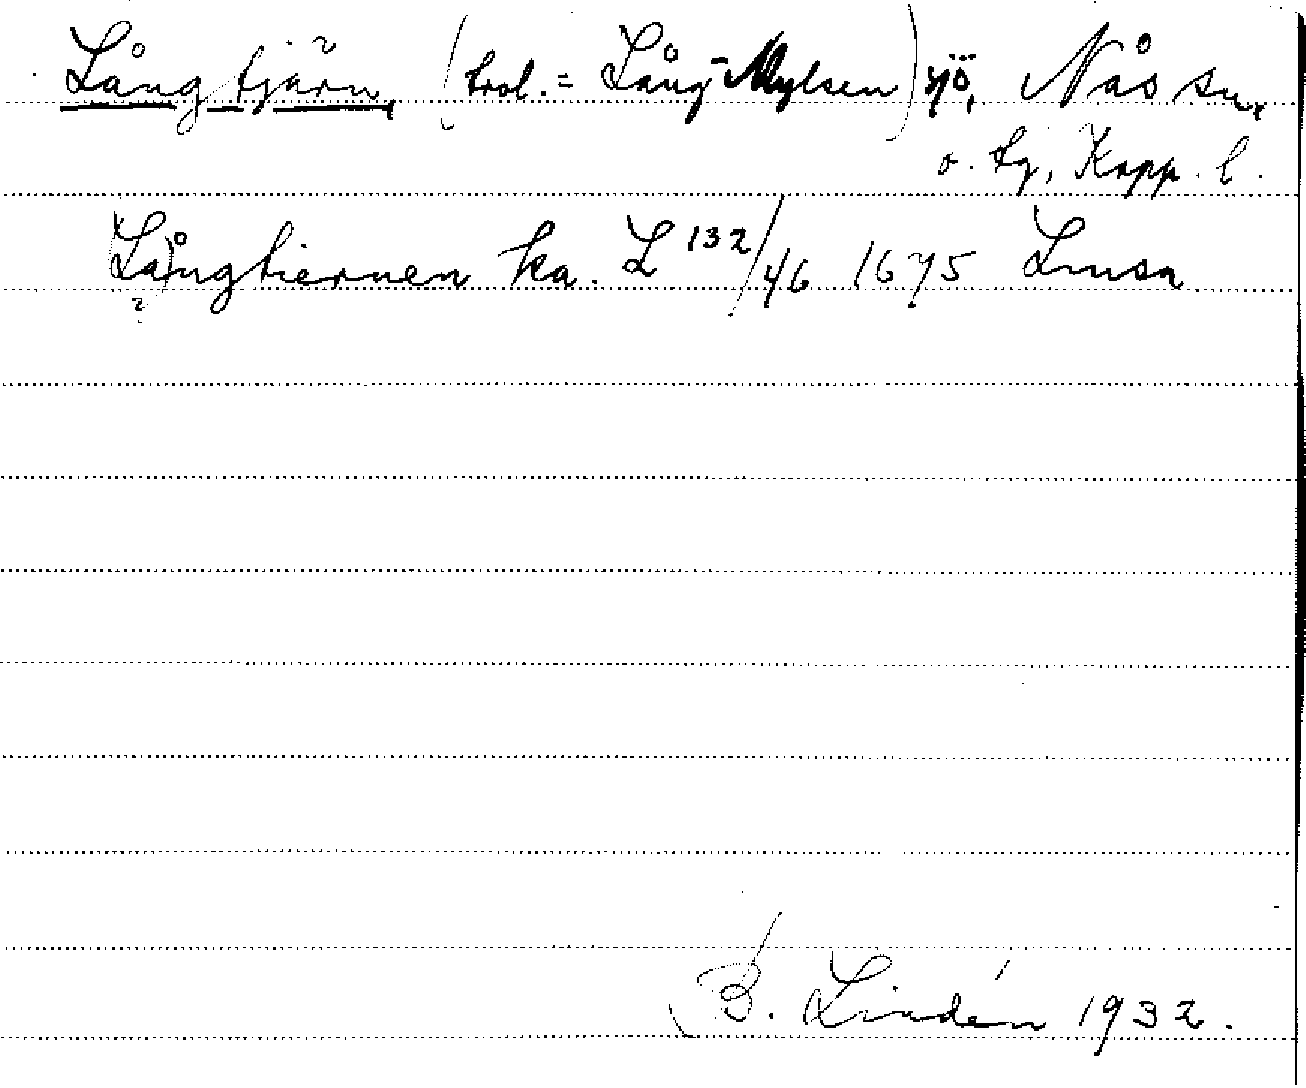 Långtjärn, (trol. = Lång-Mylsen) sjö, Nås sn,
o. tg, Kopp. l.
Långtiernen ka. L 132/46 1675 Lmsa
?
B. Lindén 1932.